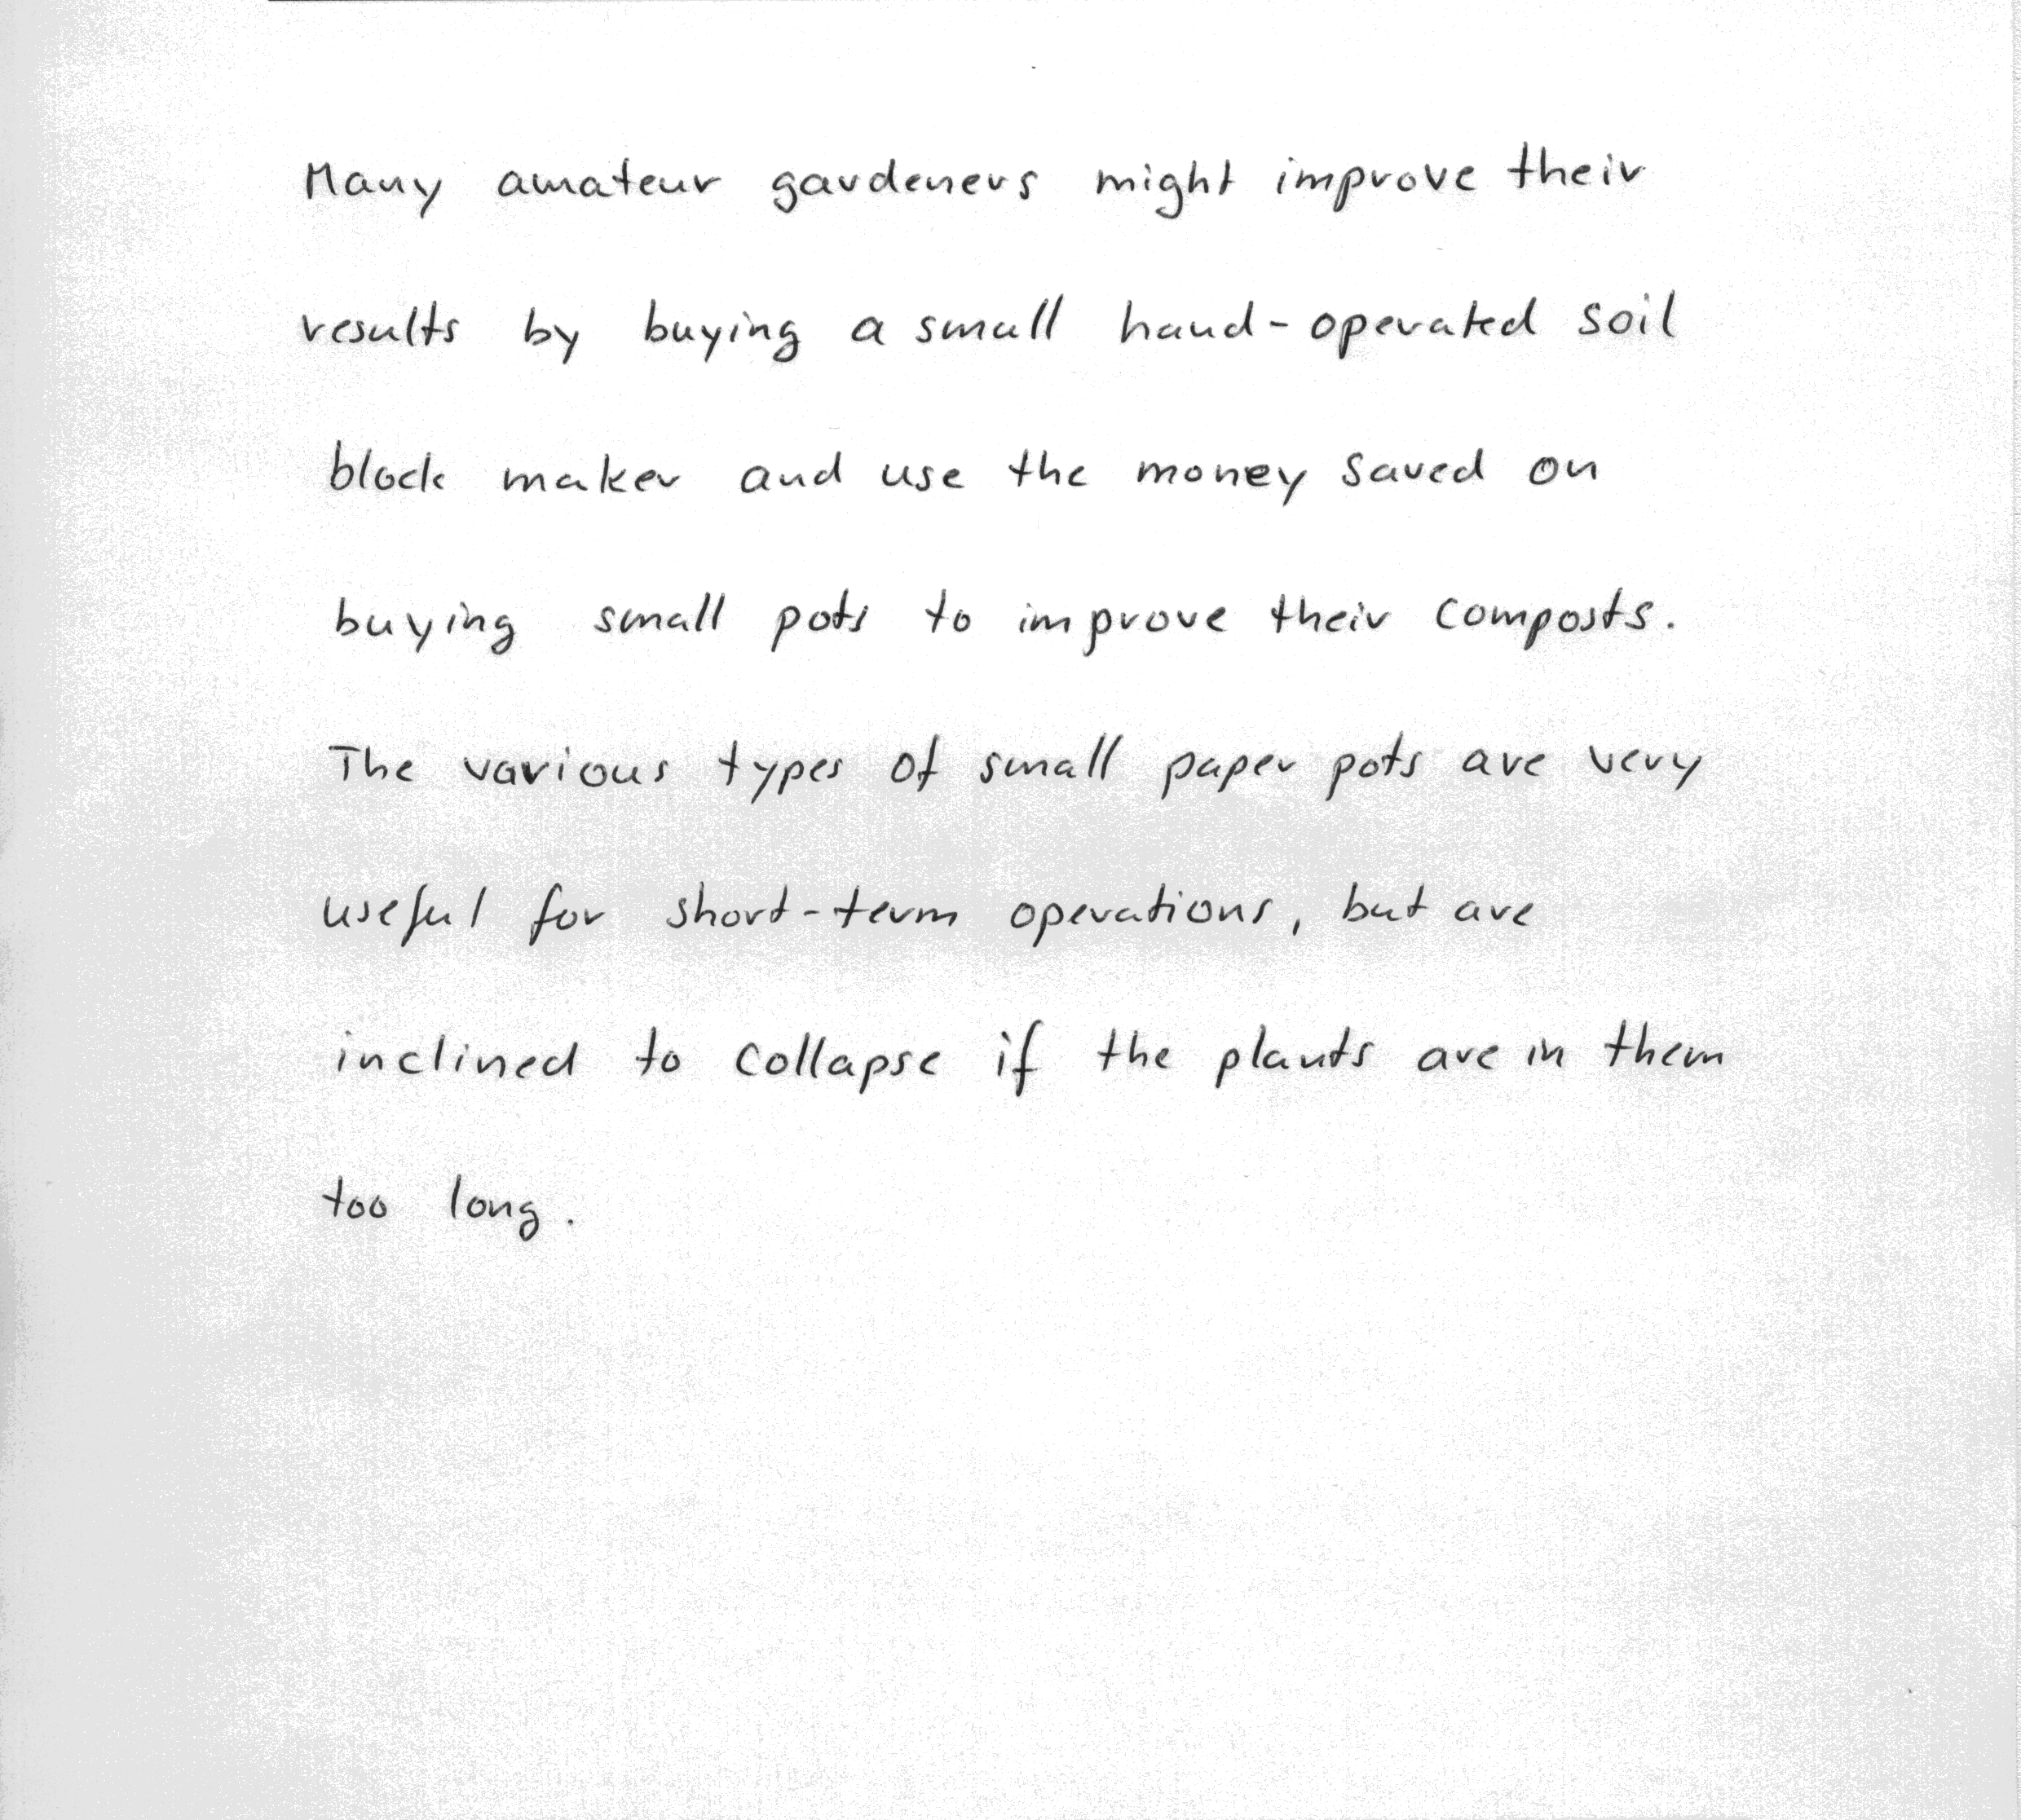 Many amateur gardeners might improve their
results by buying a small hand-operated soil
block maker and use the money saved on
buying small pots to improve their composts.
The various types of small paper pots are very
useful for short-term operations, but are
inclined to collapse if the plants are in them
too long.